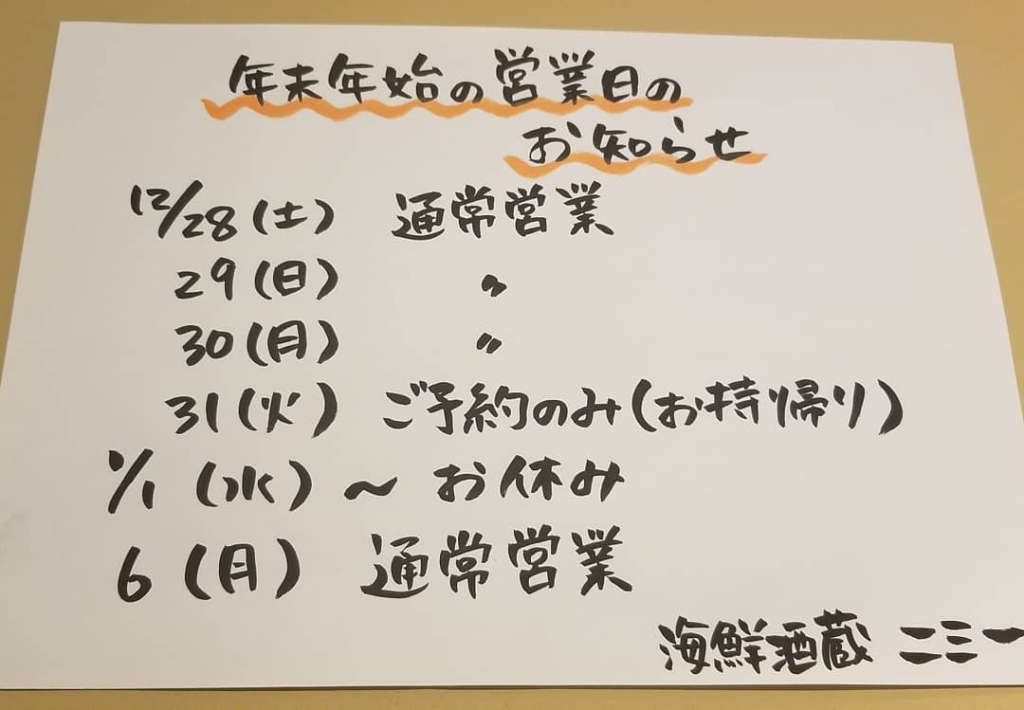 年末年始の営業日の
お知らせ
12/28(土) 通常営業
29(日) 〃
30(月) 〃
31(火) ご予約のみ(お持帰り)
1/1(水)～お休み
6(月) 通常営業
海鮮酒蔵 二三一